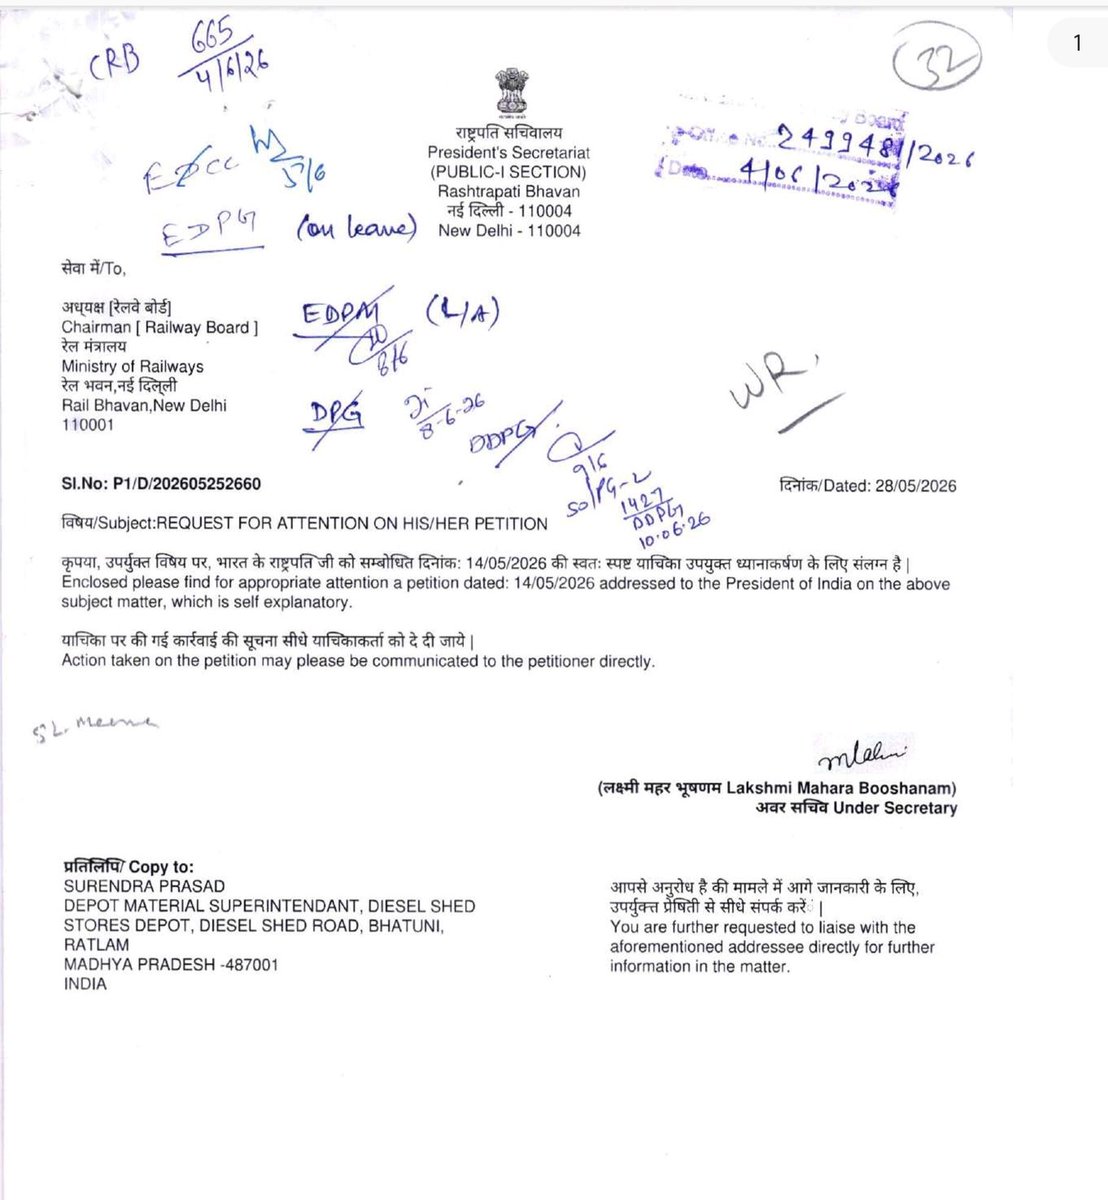 1
CRB
665
4/6/26
32
राष्ट्रपति सचिवालय
President's Secretariat
(PUBLIC-I SECTION)
Rashtrapati Bhavan
नई दिल्ली - 110004
New Delhi - 110004
Board
249948/2026
Date 4/06/2026
5/6
EDPG (on leave)
सेवा में/To,
अध्यक्ष [रेलवे बोर्ड]
Chairman [ Railway Board ]
रेल मंत्रालय
Ministry of Railways
रेल भवन,नई दिल्ली
Rail Bhavan,New Delhi
110001
EDPM (L/A)
8/6
WR.
DPG
8-6-26
DDPG
9/6
SO/PG-2
1427
DDPG
10.06.26
Sl.No: P1/D/202605252660
दिनांक/Dated: 28/05/2026
विषय/Subject:REQUEST FOR ATTENTION ON HIS/HER PETITION
कृपया, उपर्युक्त विषय पर, भारत के राष्ट्रपति जी को सम्बोधित दिनांक: 14/05/2026 की स्वतः स्पष्ट याचिका उपयुक्त ध्यानाकर्षण के लिए संलग्न है |
Enclosed please find for appropriate attention a petition dated: 14/05/2026 addressed to the President of India on the above
subject matter, which is self explanatory.
याचिका पर की गई कार्रवाई की सूचना सीधे याचिकाकर्ता को दे दी जाये |
Action taken on the petition may please be communicated to the petitioner directly.
SL. Meena
(लक्ष्मी महर भूषणम Lakshmi Mahara Booshanam)
अवर सचिव Under Secretary
प्रतिलिपि/ Copy to:
SURENDRA PRASAD
DEPOT MATERIAL SUPERINTENDANT, DIESEL SHED
STORES DEPOT, DIESEL SHED ROAD, BHATUNI,
RATLAM
MADHYA PRADESH -487001
INDIA
आपसे अनुरोध है की मामले में आगे जानकारी के लिए,
उपर्युक्त प्रेषिती से सीधे संपर्क करें |
You are further requested to liaise with the
aforementioned addressee directly for further
information in the matter.